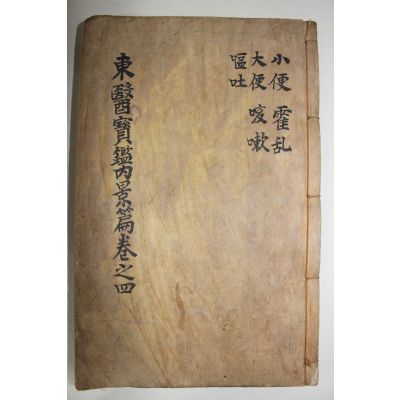 小便 霍乱
大便 咳嗽
嘔吐
東醫寶鑑內景篇卷之四